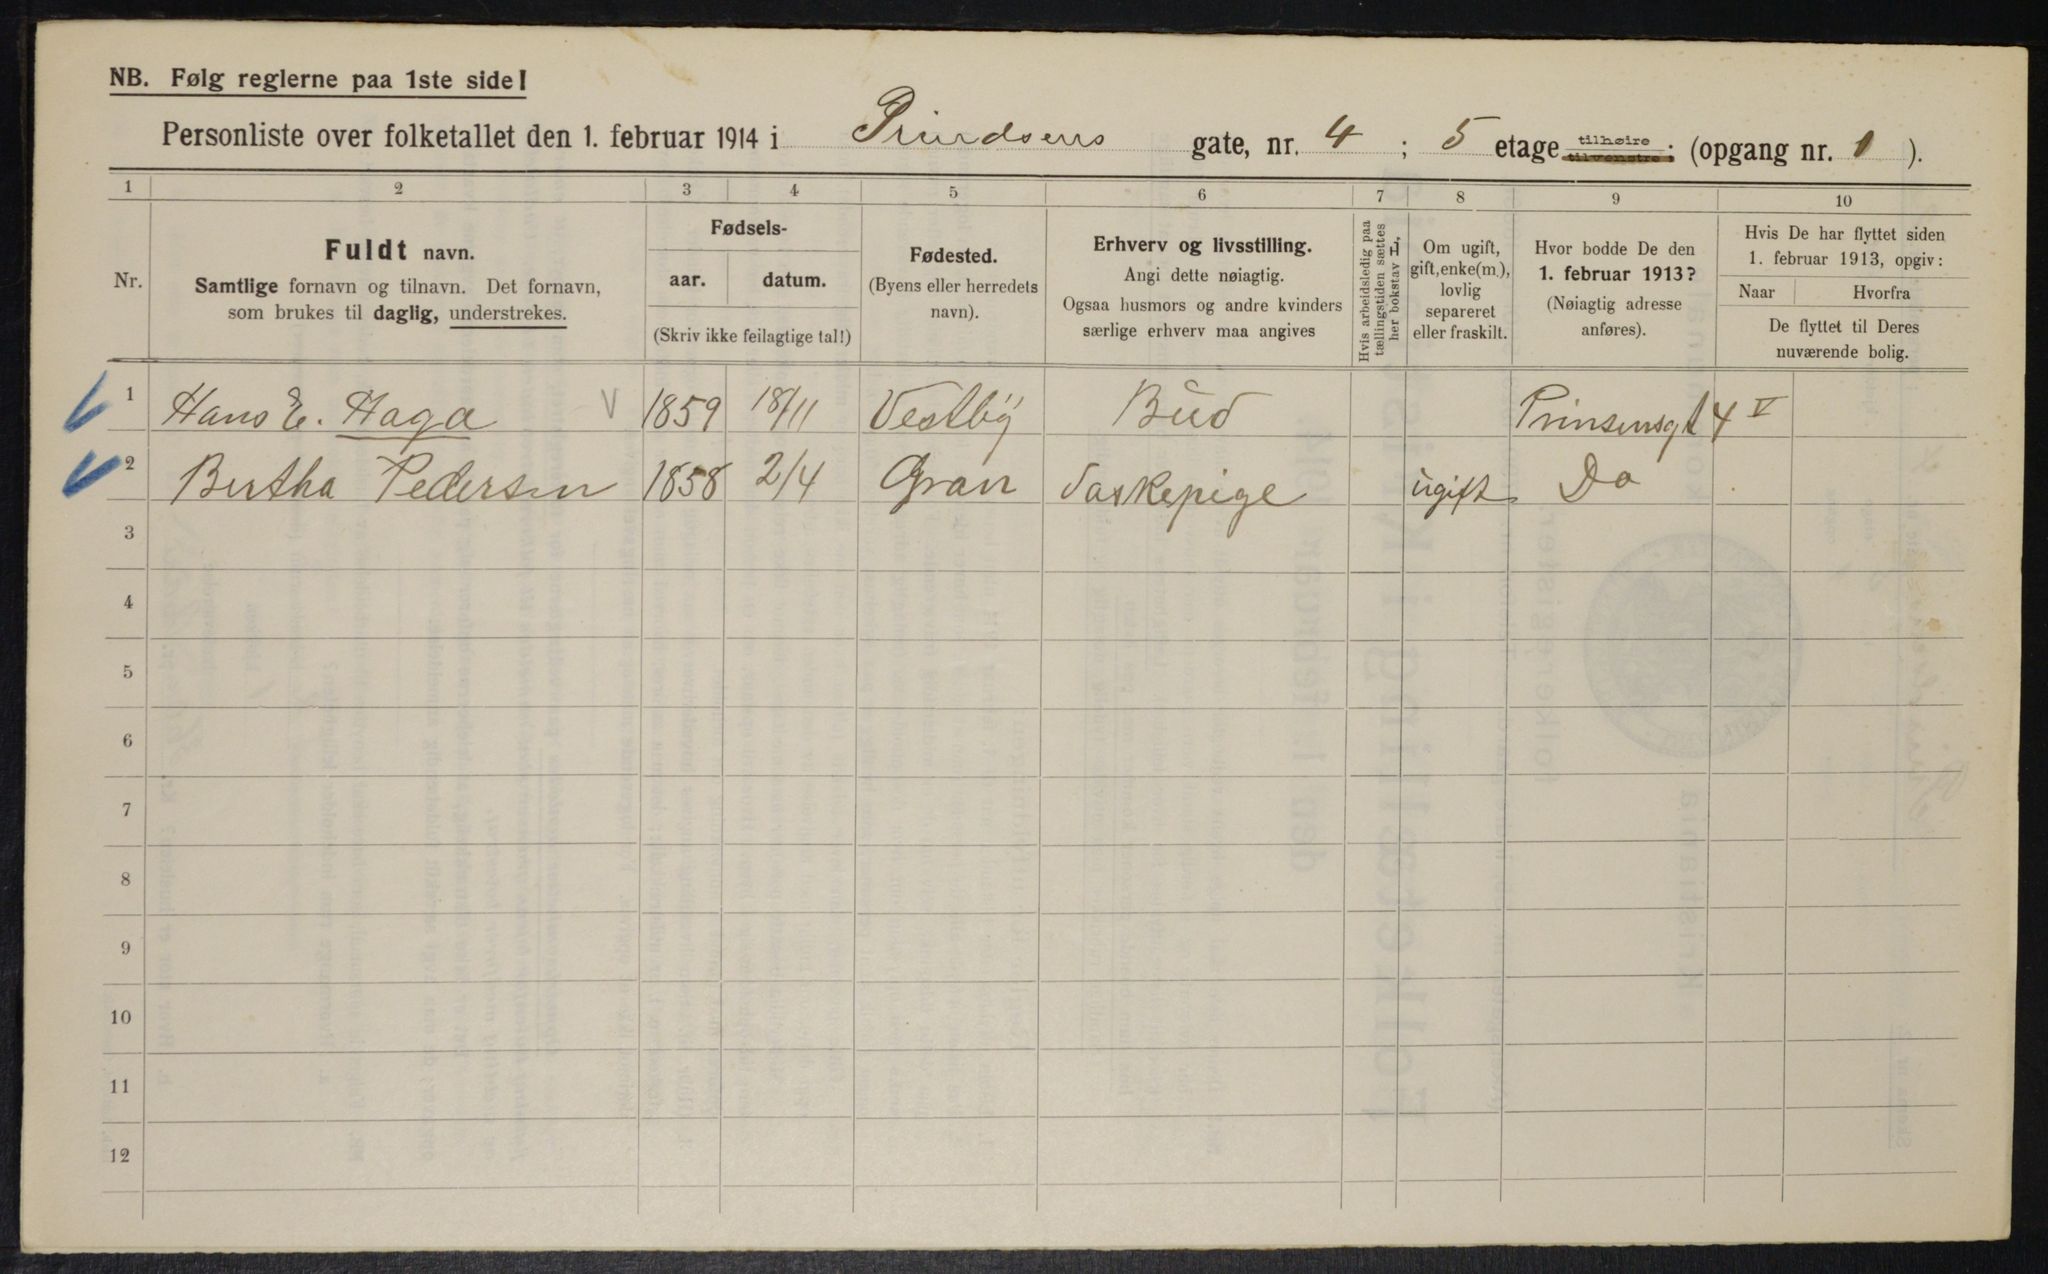 NB. Følg reglerne paa 1ste side!
Personliste over folketallet den 1. februar 1914 i Prindsens gate, nr. 4 ; 5 etage tilhøire tilvenstre: (opgang nr. 1 ).
1 2 3 4 5 6 7 8 9 10
Nr.
Fuldt navn.
Samtlige fornavn og tilnavn. Det fornavn,
som brukes til daglig, understrekes.
Fødsels-
aar. datum.
(Skriv ikke feilagtige tal!)
Fødested.
(Byens eller herredets
navn).
Erhverv og livsstilling.
Angi dette nøiagtig.
Ogsaa husmors og andre kvinders
særlige erhverv maa angives
Hvis arbeidsledig paa
tællingstiden sættes
her bokstav L,
Om ugift,
gift, enke(m.),
lovlig
separeret
eller fraskilt.
Hvor bodde De den
1. februar 1913?
(Nøiagtig adresse
anføres).
Hvis De har flyttet siden
1. februar 1913, opgiv:
Naar Hvorfra
De flyttet til Deres
nuværende bolig.
1 Hans E. Haga 1859 18/11 Vestby Bud Prinsensgt 4 V
2 Bertha Pedersen 1858 2/4 Gran Vaskepige ugift Do
3
4
5
6
7
8
9
10
11
12